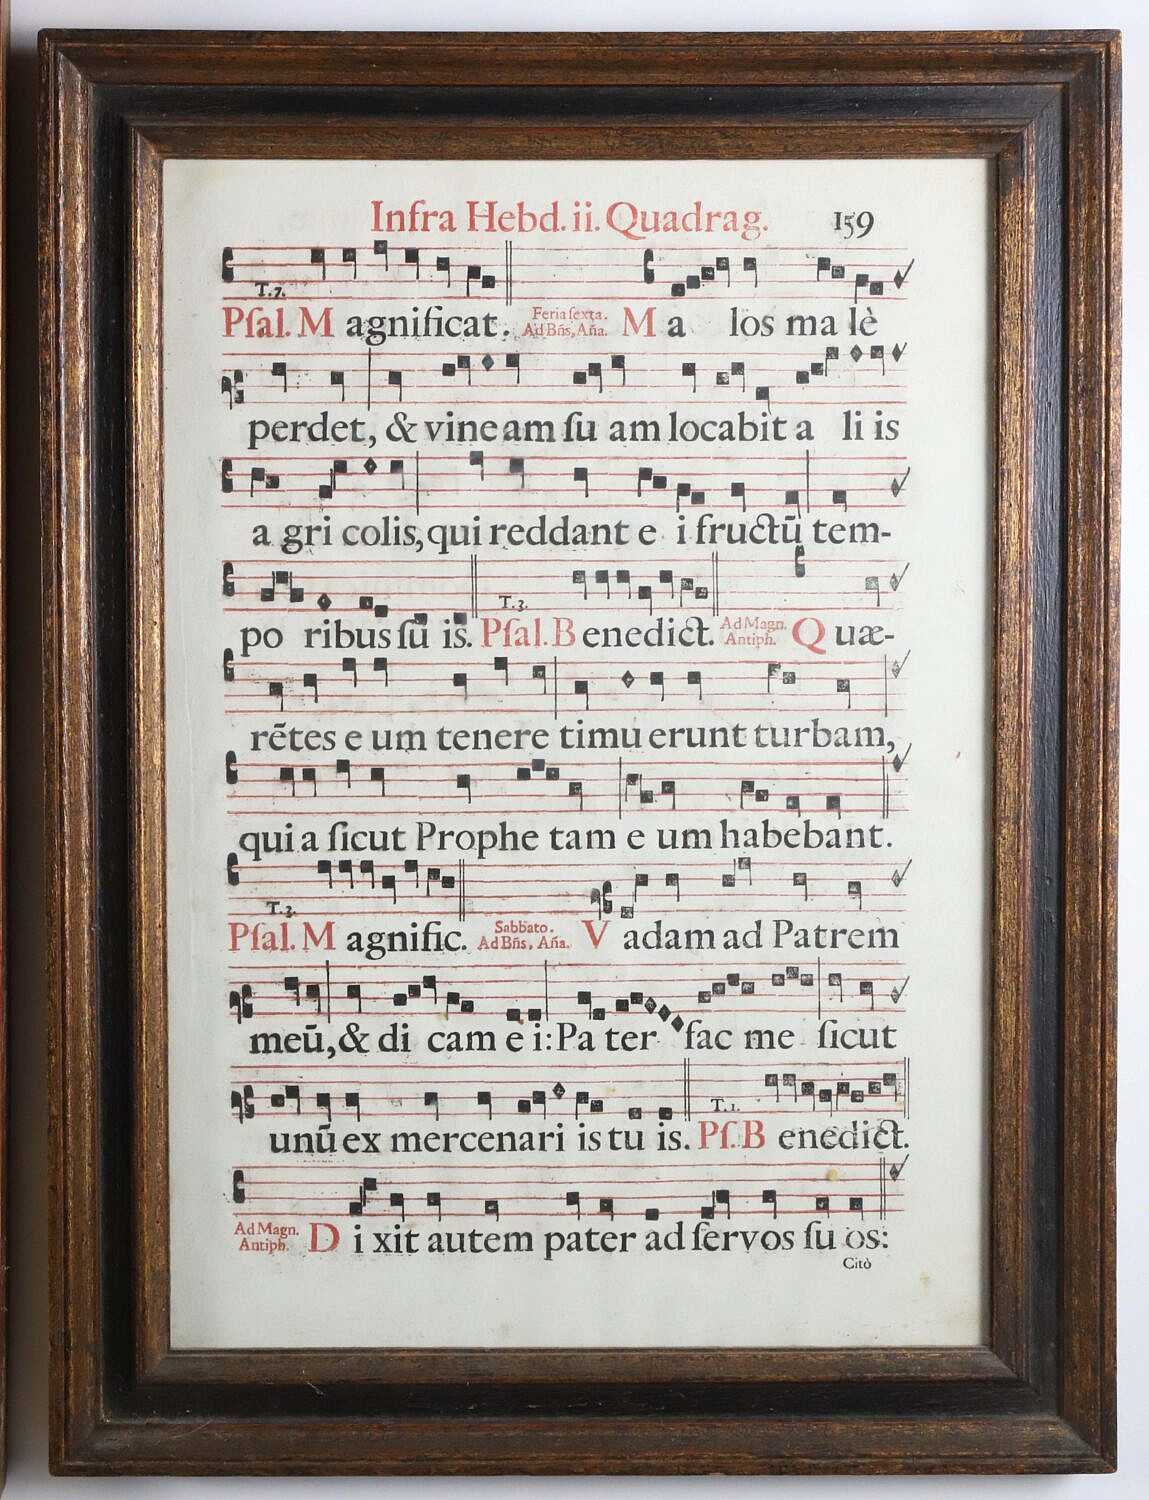 Infra Hebd. ii. Quadrag. 159
T.7.
Pſal. M agnificat. Feria ſexta. Ad Bñs, Aña. M a los ma lè
perdet, & vineam ſu am locabit a li is
a gri colis, qui reddant e i fructū tem-
T.3.
po ribus ſu is. Pſal. B enedict. Ad Magn. Antiph. Q uæ-
rētes e um tenere timu erunt turbam,
qui a ſicut Prophe tam e um habebant.
T.3.
Pſal. M agnific. Sabbato. Ad Bñs, Aña. V adam ad Patrem
meū, & di cam e i: Pa ter fac me ſicut
T.1.
unū ex mercenari is tu is. Pſ. B enedict.
Ad Magn. Antiph. D i xit autem pater ad ſervos ſu os:
Citò